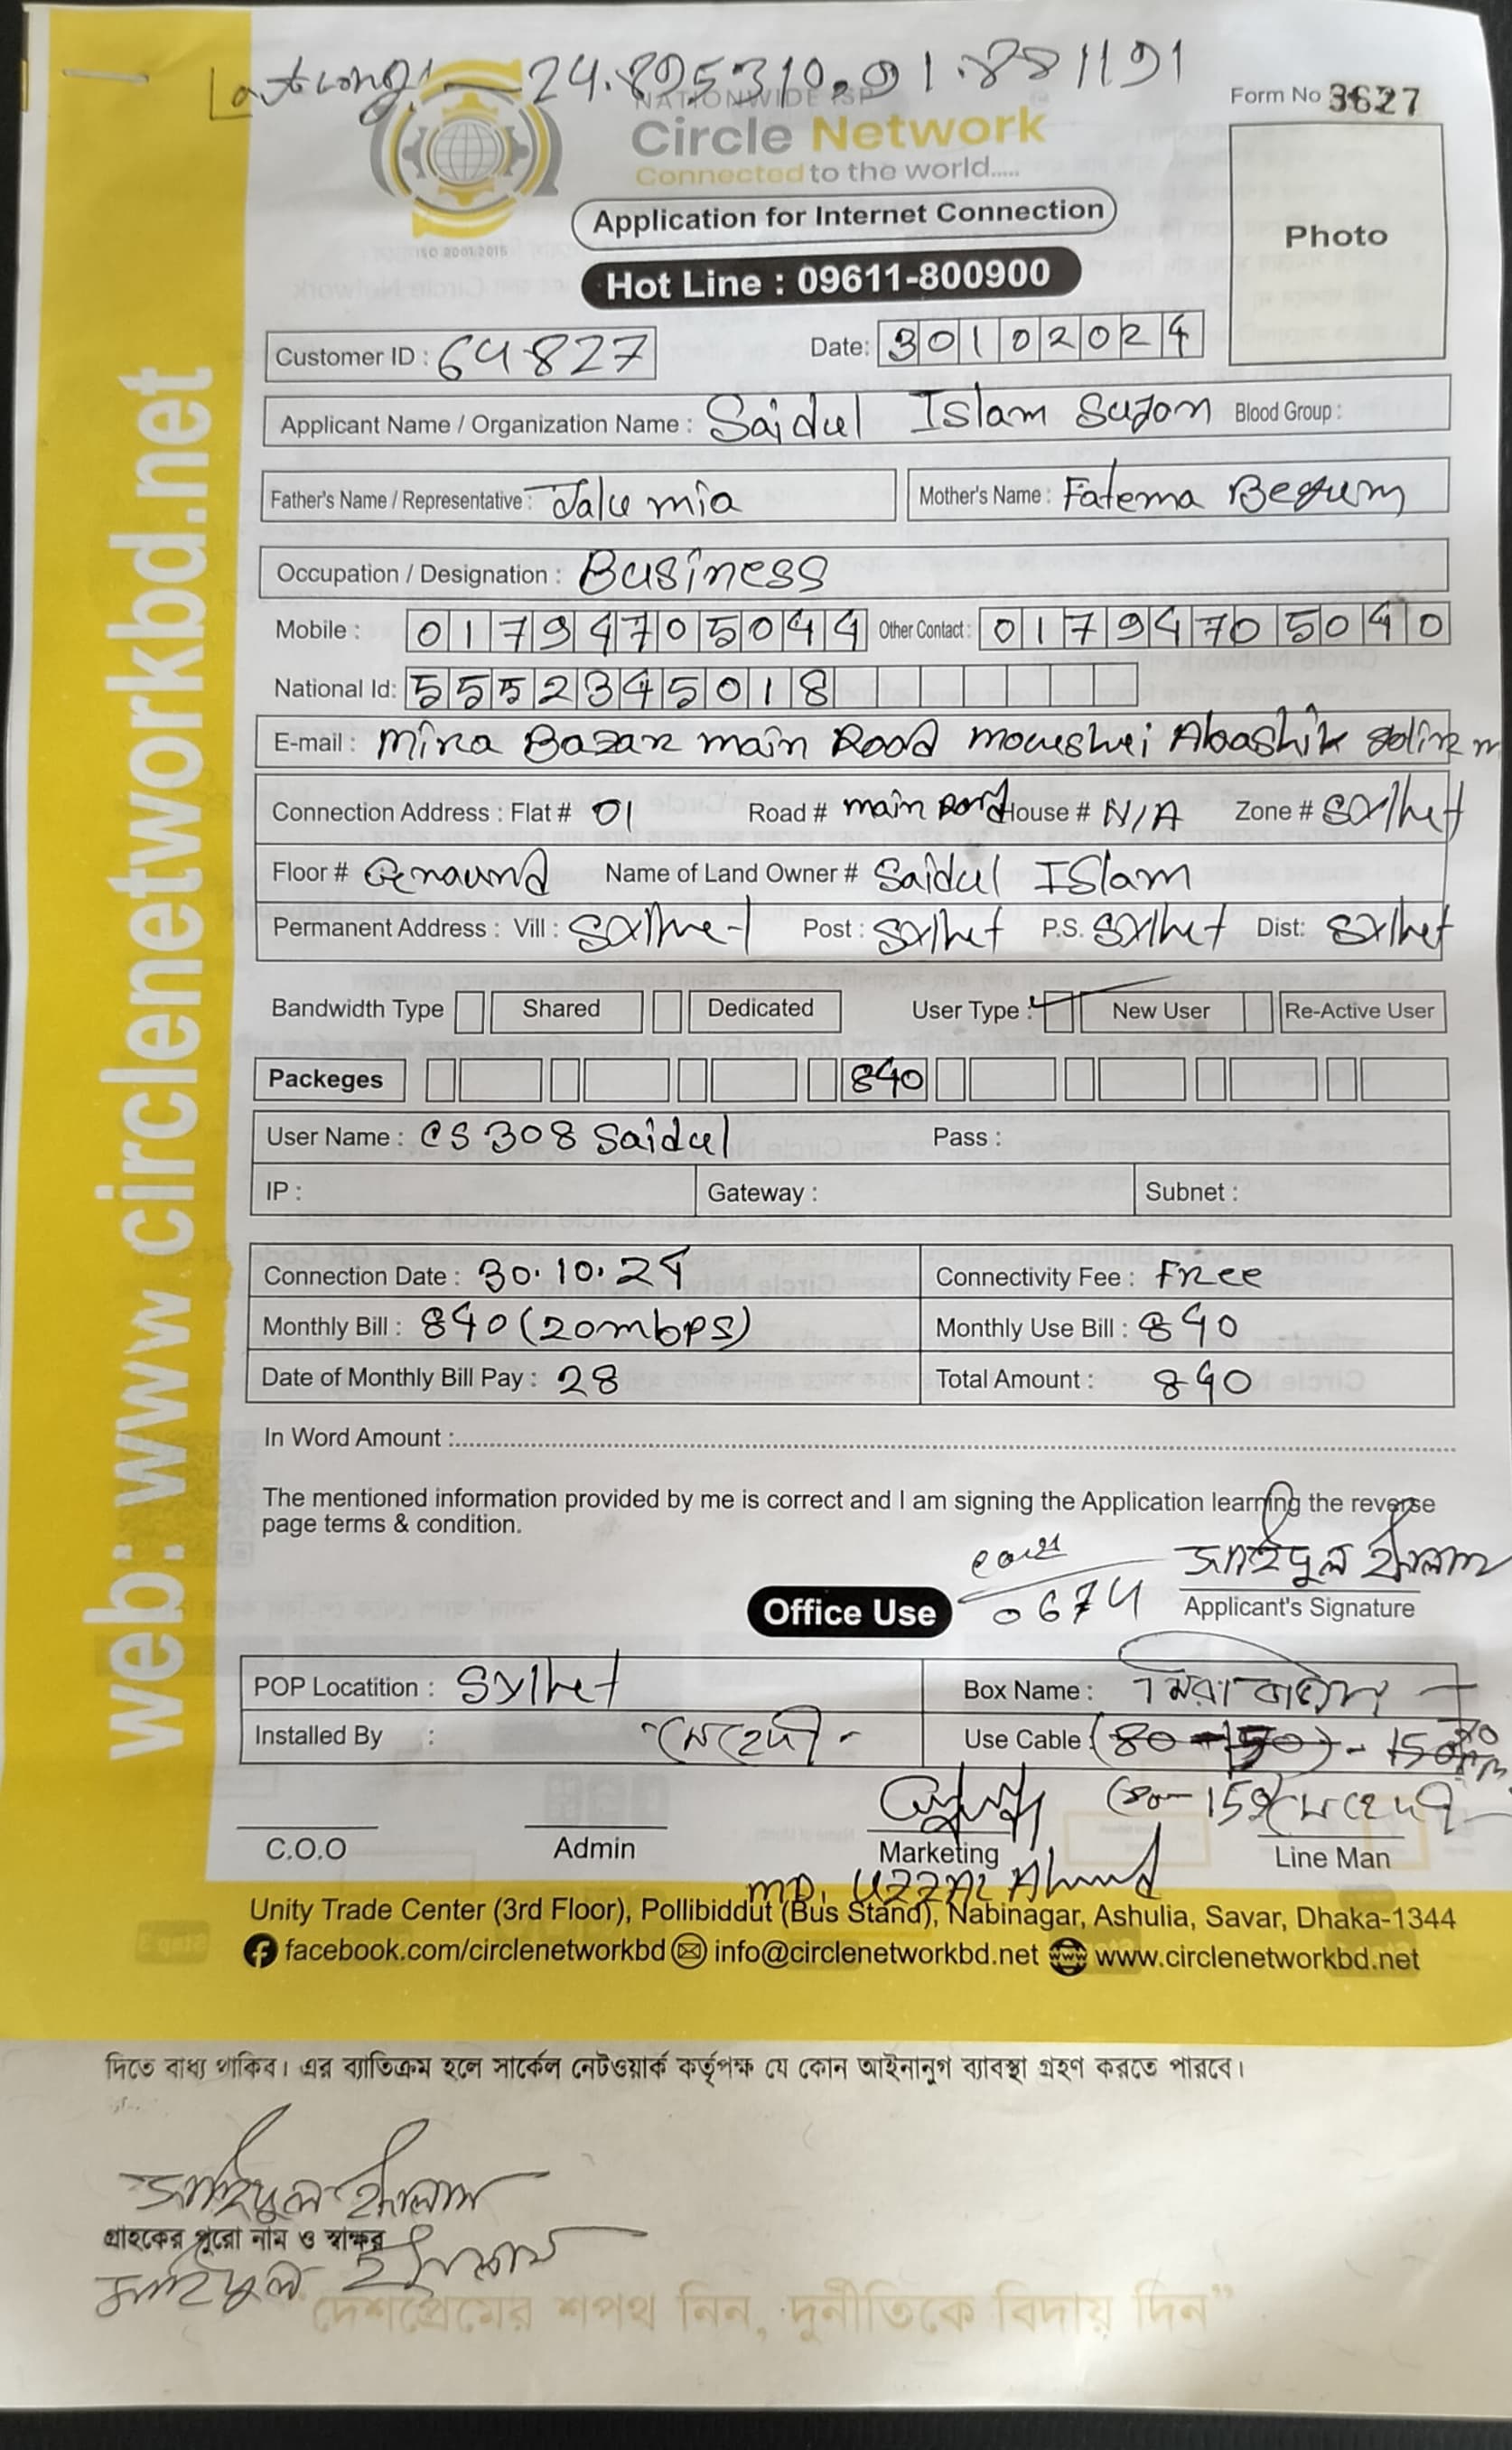 Lat Long! — 24.895310, 91.881191
NATIONWIDE ISP
Form No 3627
Circle Network
Connected to the world.....
ISO 9001:2015
Application for Internet Connection
Photo
Hot Line : 09611-800900
Customer ID : 64827 Date: 30102024
Applicant Name / Organization Name : Saidul Islam Sujon Blood Group :
Father's Name / Representative : Jalu mia Mother's Name : Fatema Begum
Occupation / Designation : Business
Mobile : 01794705044 Other Contact : 01794705040
National Id: 5552345018
E-mail : Mira Bazar main Road moushui Abashik
Connection Address : Flat # 01 Road # main Road House # N/A Zone # Sylhet
Floor # Ground Name of Land Owner # Saidul Islam
Permanent Address : Vill : Sylhet Post : Sylhet P.S. Sylhet Dist: Sylhet
Bandwidth Type Shared Dedicated User Type : New User Re-Active User
Packeges 840
User Name : CS308 Saidul Pass :
IP : Gateway : Subnet :
Connection Date : 30.10.24 Connectivity Fee : Free
Monthly Bill : 840 (20mbps) Monthly Use Bill : 840
Date of Monthly Bill Pay : 28 Total Amount : 840
In Word Amount :
The mentioned information provided by me is correct and I am signing the Application learning the reverse
page terms & condition.
সাইদুল ইসলাম
Office Use 0674 Applicant's Signature
POP Locatition : Sylhet Box Name : মিরা বাজার
Installed By : মেহেদী Use Cable : (80 - 150) - 150
মেহেদী
C.O.O Admin Marketing Line Man
MD. Uzzal Ahmed
Unity Trade Center (3rd Floor), Pollibiddut (Bus Stand), Nabinagar, Ashulia, Savar, Dhaka-1344
facebook.com/circlenetworkbd info@circlenetworkbd.net www.circlenetworkbd.net
web: www.circlenetworkbd.net
দিতে বাধ্য থাকিব। এর ব্যাতিক্রম হলে সার্কেল নেটওয়ার্ক কর্তৃপক্ষ যে কোন আইনানুগ ব্যাবস্থা গ্রহণ করতে পারবে।
সাইদুল ইসলাম
গ্রাহকের পুরো নাম ও স্বাক্ষর
সাইদুল ইসলাম
"দেশপ্রেমের শপথ নিন, দুর্নীতিকে বিদায় দিন"